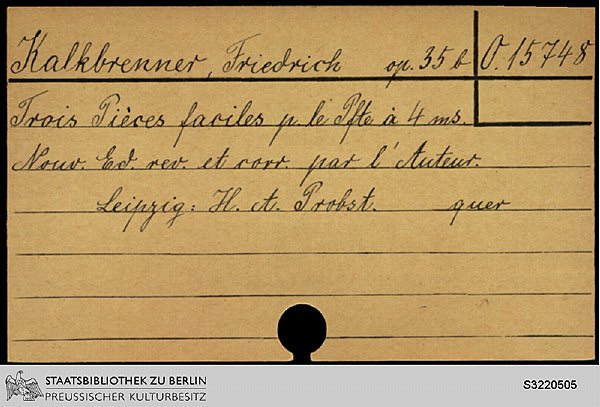 Kalkbrenner, Friedrich op. 35 b O. 15748
Trois Pièces faciles p. le Pfte à 4 ms.
Nouv. Ed. rev. et corr. par l'Auteur.
Leipzig: H. A. Probst. quer
STAATSBIBLIOTHEK ZU BERLIN
PREUSSISCHER KULTURBESITZ
S3220505